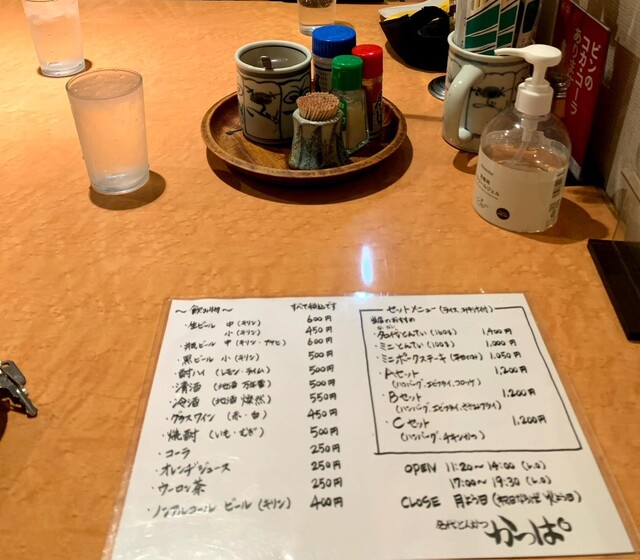 ～飲み物～ すべて税込です
・生ビール 中（キリン） 600円
小（キリン） 450円
・瓶ビール 中（キリン・アサヒ） 600円
・黒ビール 小（キリン） 500円
・酎ハイ（レモン・ライム） 500円
・清酒（地酒 万年雪） 500円
・冷酒（地酒 燦然） 550円
・グラスワイン（赤・白） 450円
・焼酎（いも・むぎ） 500円
・コーラ 250円
・オレンヂジュース 250円
・ウーロン茶 250円
・ノンアルコール ビール（キリン） 400円
セットメニュー（ライス、スープ付）
当店のおすすめ
・名代とんてい（160g）
・ミニとんてい（100g） 1,000円
・ミニポークステーキ 1,050円
・Aセット 1,200円
（ハンバーグ、エビフライ、コロッケ）
・Bセット 1,200円
（ハンバーグ、エビフライ、ささみフライ）
・Cセット 1,200円
（ハンバーグ、チキンかつ）
OPEN 11:20～14:00（L.O）
17:00～19:30（L.O）
CLOSE 月よう日（祝日ならば火よう日）
名代とんかつ かっぱ